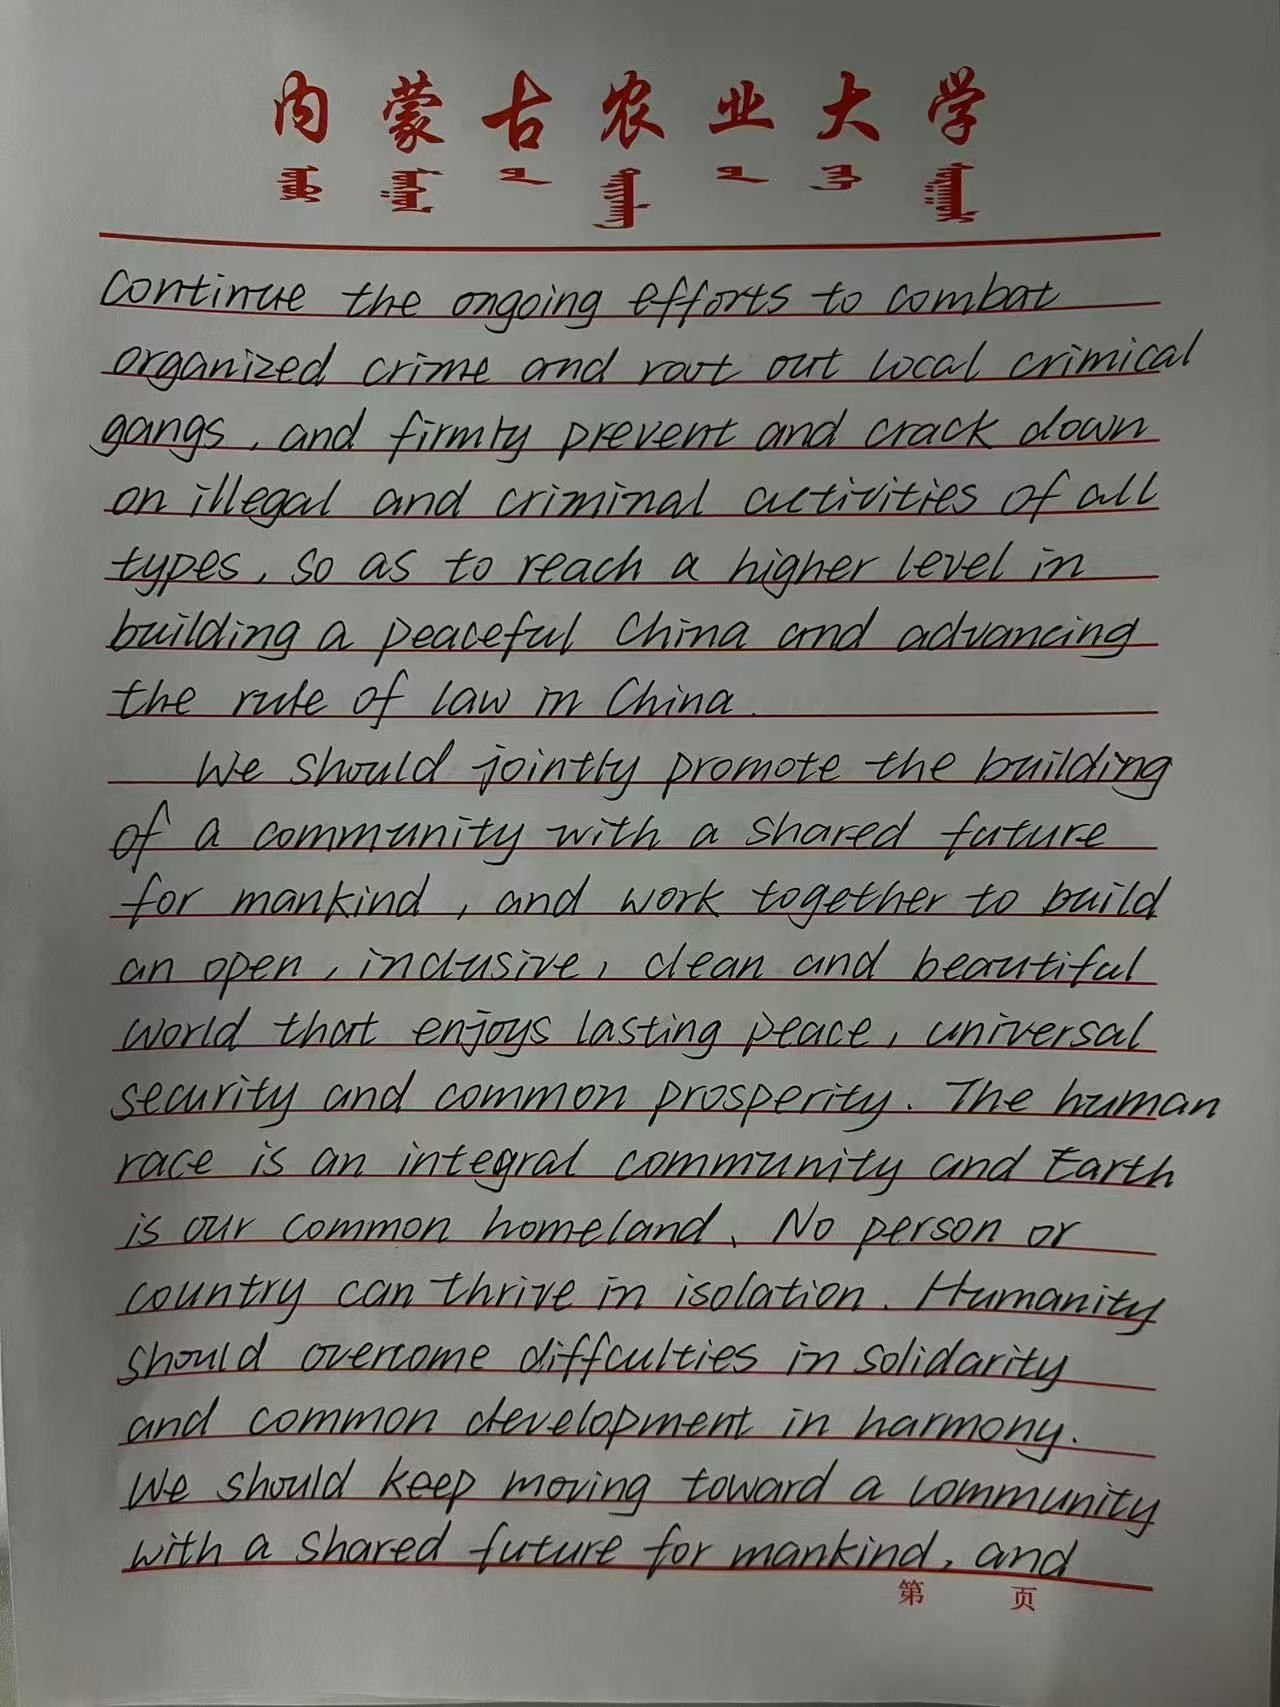 内蒙古农业大学
continue the ongoing efforts to combat
organized crime and root out local crimical
gangs, and firmly prevent and crack down
on illegal and criminal activities of all
types, so as to reach a higher level in
building a peaceful China and advancing
the rule of law in China.
We should jointly promote the building
of a community with a shared future
for mankind, and work together to build
an open, inclusive, clean and beautiful
world that enjoys lasting peace, universal
security and common prosperity. The human
race is an integral community and Earth
is our common homeland. No person or
country can thrive in isolation. Humanity
should overcome difficulties in solidarity
and common development in harmony.
We should keep moving toward a community
with a shared future for mankind, and
第 页